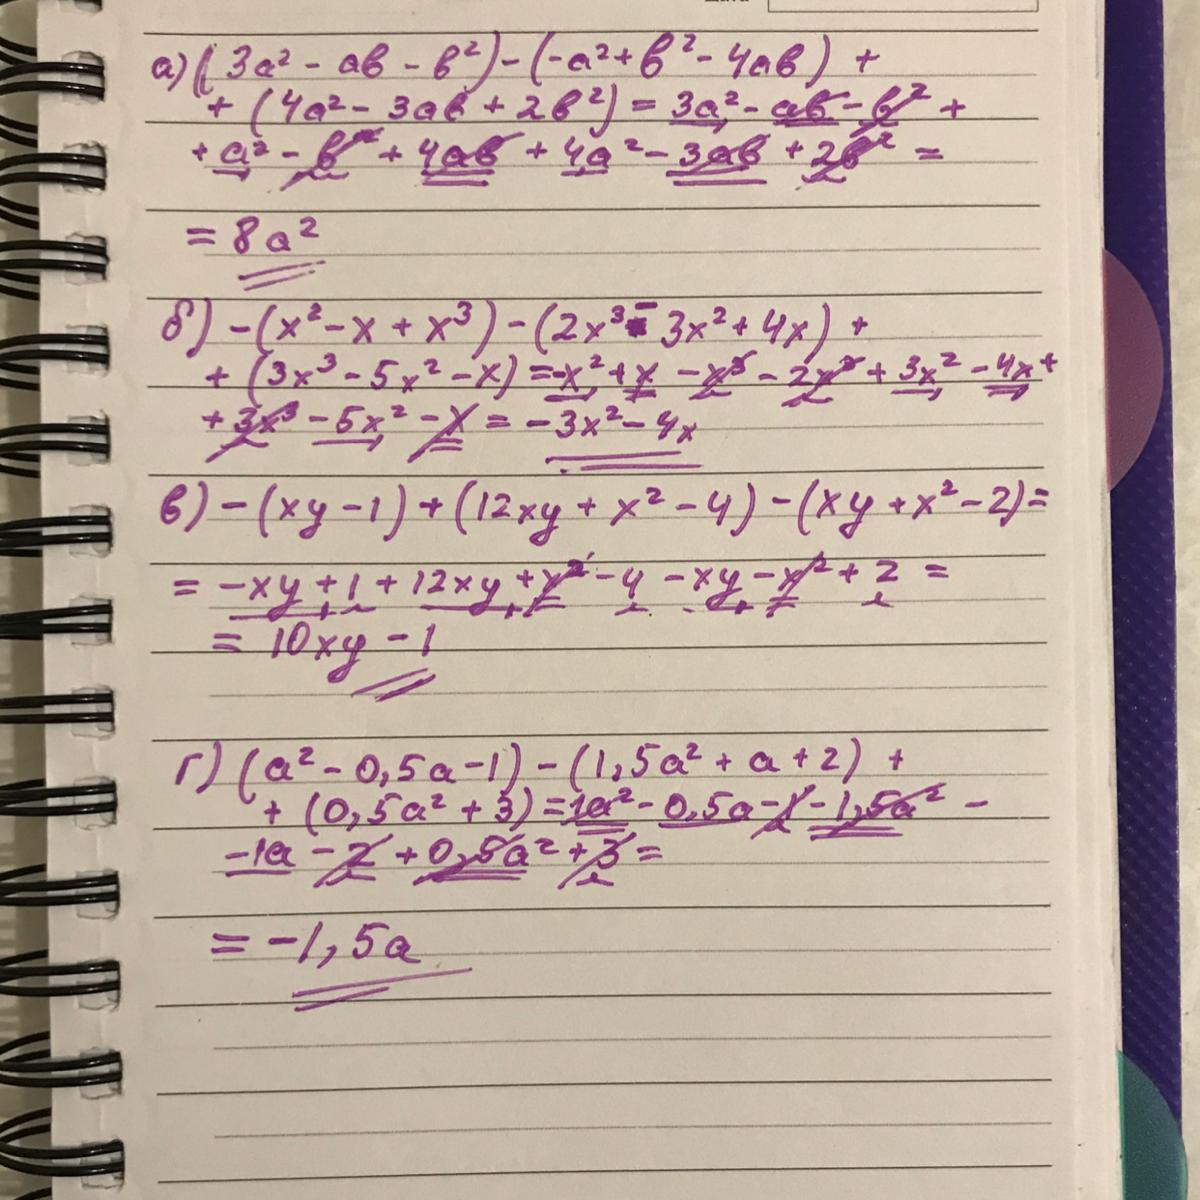 а) (3a² - ab - b²) - (-a² + b² - 4ab) +
+ (4a² - 3ab + 2b²) = 3a² - ab - b² +
+ a² - b² + 4ab + 4a² - 3ab + 2b² =
= 8a²
б) - (x² - x + x³) - (2x³ - 3x² + 4x) +
+ (3x³ - 5x² - x) = -x² + x - x³ - 2x³ + 3x² - 4x +
+ 3x³ - 5x² - x = -3x² - 4x
в) - (xy - 1) + (12xy + x² - 4) - (xy + x² - 2) =
= -xy + 1 + 12xy + x² - 4 - xy - x² + 2 =
= 10xy - 1
г) (a² - 0,5a - 1) - (1,5a² + a + 2) +
+ (0,5a² + 3) = 1a² - 0,5a - 1 - 1,5a² -
- 1a - 2 + 0,5a² + 3 =
= -1,5a